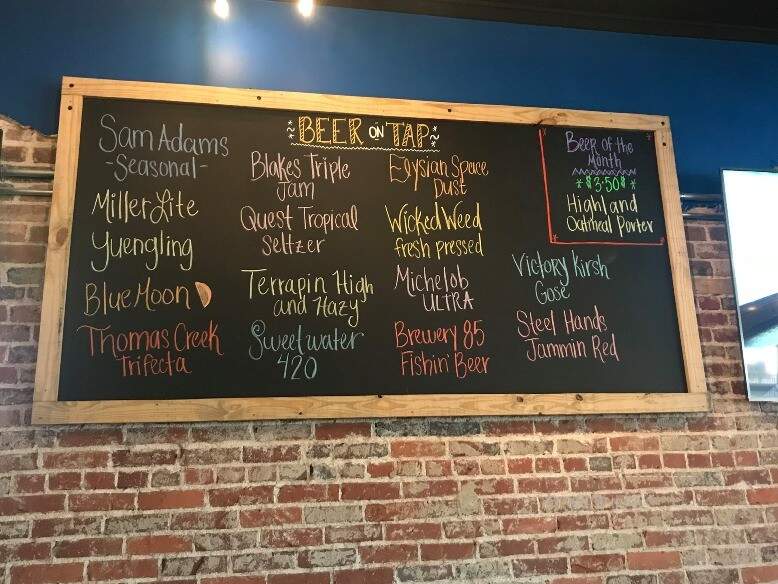 *BEER ON TAP*
Sam Adams
-Seasonal-
Miller Lite
Yuengling
Blue Moon
Thomas Creek
Trifecta
Blakes Triple
Jam
Quest Tropical
Seltzer
Terrapin High
and Hazy
Sweetwater
420
Elysian Space
Dust
Wicked Weed
fresh pressed
Michelob
ULTRA
Brewery 85
Fishin' Beer
Beer of the
Month
*$3.50$*
Highland
Oatmeal Porter
Victory Kirsh
Gose
Steel Hands
Jammin Red